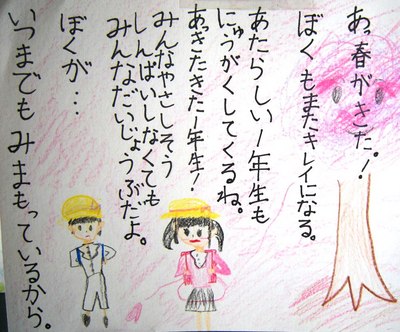 あっ春がきた。!
ぼくもまたキレイになる。
あたらしい1年生も
にゅうがくしてくるね。
あっきたきた1年生!
みんなやさしそう
しんぱいしなくても
みんなだいじょうぶだよ。
ぼくが…
いつまでもみまもっているから。